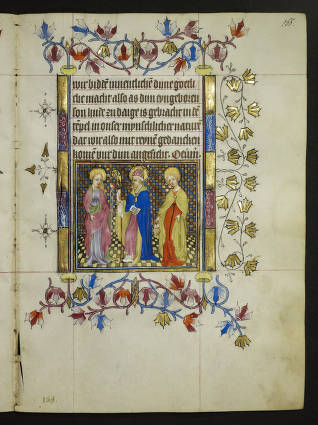 wir bidtē innentlichē dine goetli
che macht also as din eyngeboren
son hude zu daige is gebracht in dē
tēpel in onser mynschlicher naturē
dat wir also mit reynē gedanchen
komē vur din angesicht.